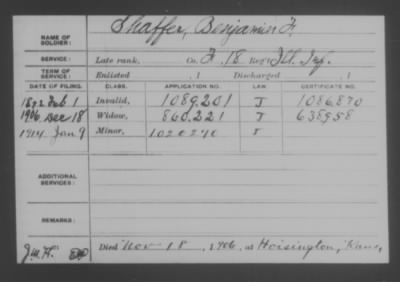 NAME OF SOLDIER: Shaffer, Benjamin F.
SERVICE: Late rank, Co. F, 18 Reg't Ill. Inf.
TERM OF SERVICE: Enlisted , 1 Discharged , 1
DATE OF FILING. CLASS. APPLICATION NO. LAW. CERTIFICATE NO.
1892 Feb 1 Invalid, 1089.201 J 1086.870
1906 Dec 18 Widow, 860.221 J 638958
1914 Jan 9 Minor, 1020270 J
ADDITIONAL SERVICES:
REMARKS:
J.W.H. Died Nov 18, 1906, at Hoisington, Kans,